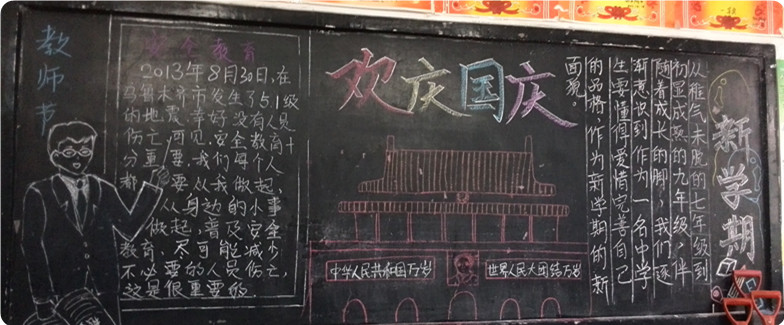 教师节
安全教育
2013年8月30日,在
乌鲁木齐市发生了5.1级
的地震,幸好没有人员
伤亡,可见,安全教育十
分重要,我们每个人
都需要从我做起,
从身边的小事
做起,普及安全
教育,尽可能减少
不必要的人员伤亡,
这是很重要的.
欢庆国庆
中华人民共和国万岁
世界人民大团结万岁
新学期
从稚气未脱的七年级到
初显成熟的九年级,伴
随着成长的脚,我们逐
渐意识到作为一名中学
生要懂得爱惜完善自己
的品格,作为新学期的新
面貌。